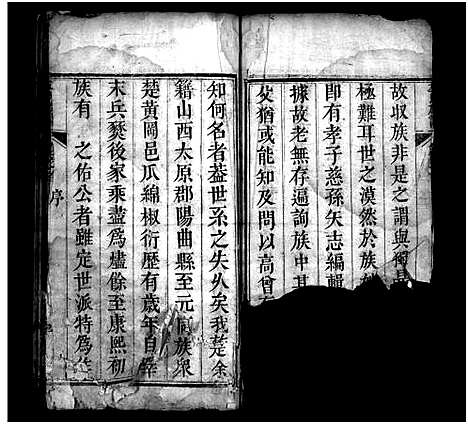 故収族非是之謂與獨
極難耳世之漠然於族
即有孝子慈孫矢志編輯
據故老無存遍詢族中其
父猶或能知及問以高曾
知何名者葢世系之失久矣我楚余
籍山西太原郡陽曲縣至元 族衆
楚黃岡邑瓜綿椒衍歷有歲年自
末兵燹後家乘盡為燼餘至康熙初
族有 之佑公者雖定世派特為
序